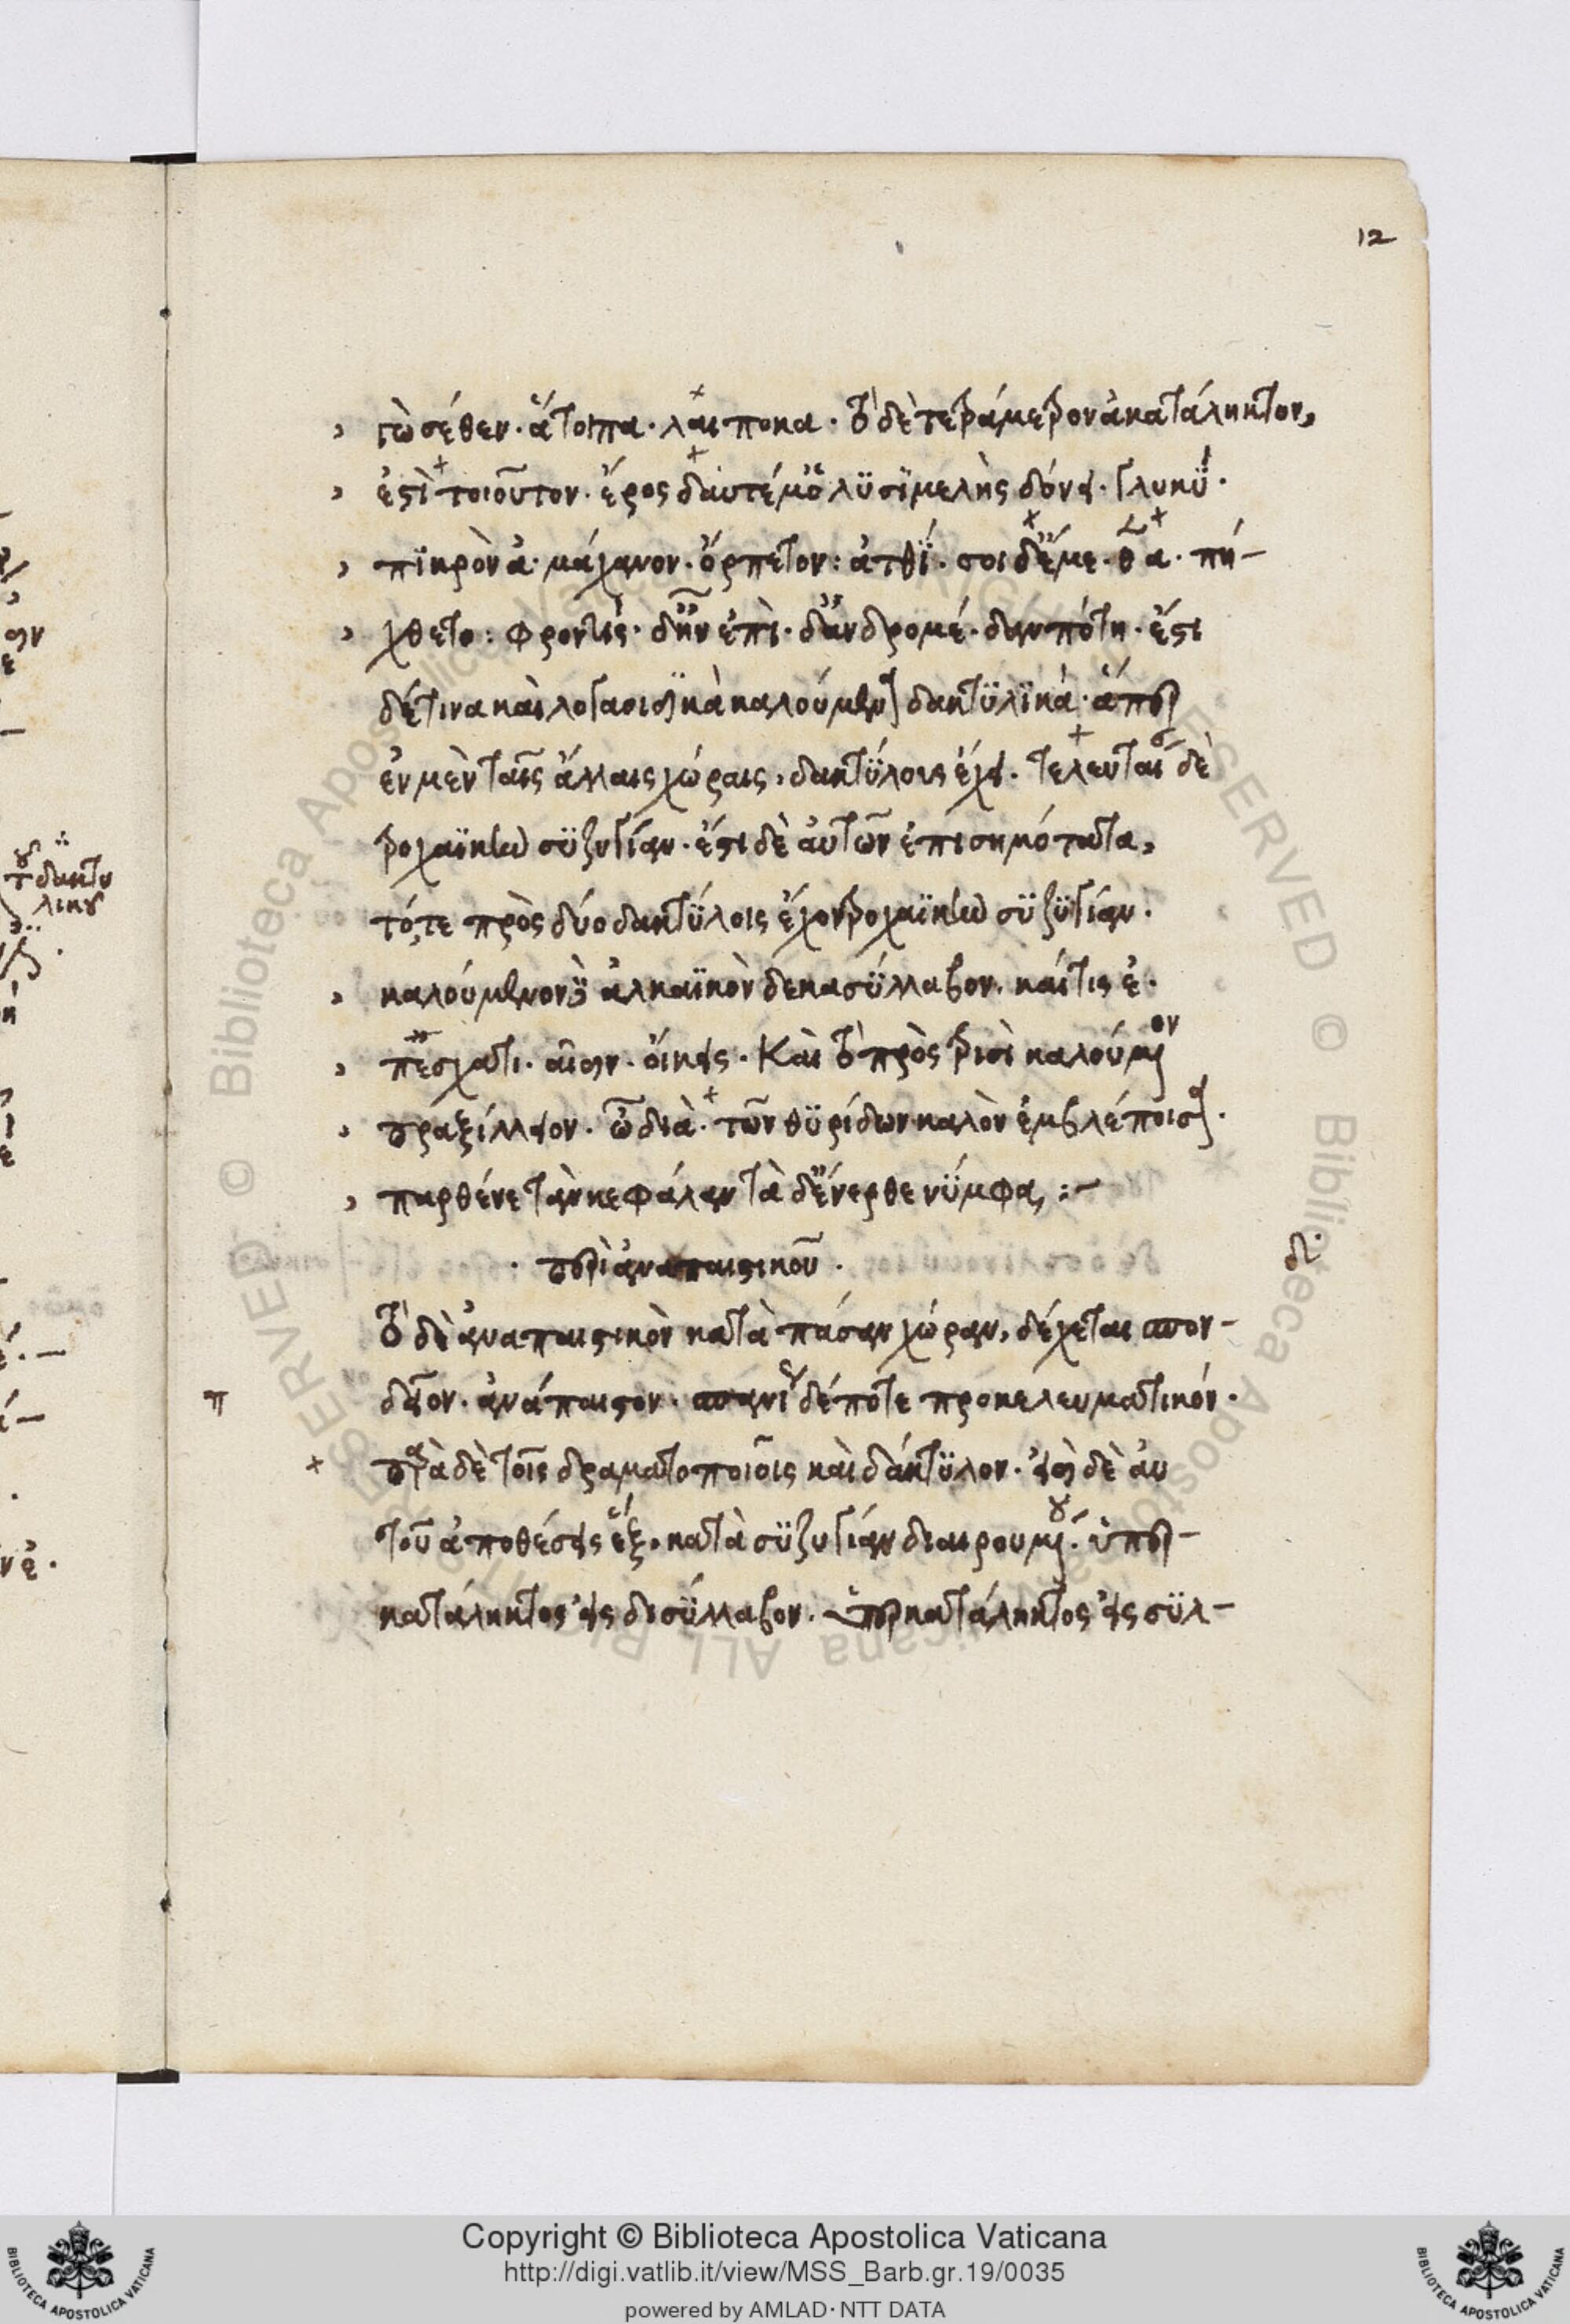 12
ἰὼ σέθεν· ἄτοιπα· λάι ποκα· τὸ δὲ τετράμετρον ἀκατάληκτον,
ἐστὶ τοιοῦτον· ἔρος δαὐτέμ ὃ λϋσϊμελὴς δόνει· γλυκϋ·
πϊκρὸν ἀ· μάχανον· ὄρπετον: ἀτθΐ· σοι δ' ἔμε· θ α· πή-
χθετο: φροντίς· δ' ἢν ἐπὶ· δ' ἀνδρομέ· δαν πότη· ἔστι
δέ τινα καὶ λογαοιδϊκὰ καλούμενα δακτϋλϊκά· ἅπερ
ἐν μὲν ταῖς ἄλλαις χώραις, δακτΰλους ἔχει· τελευταί δὲ
τροχαϊκὴν σϋζυγίαν· ἔστι δὲ αὐτῶν ἐπισημότατα,
τό, τε πρὸς δύο δακτΰλοις ἔχον τροχαϊκὴν σϋζϋγίαν·
καλούμενον ἀλκαϊκὸν δεκασΰλλαβον· καί τις ἐ·
π' ἐσχατι· αῖσιν· οἴκεις· Καὶ τὸ πρὸς τρισὶ καλούμενον
πραξίλλειον· ὦ διὰ· τῶν θϋρίδων καλὸν ἐμβλέποισα·
παρθένε τὰν κεφάλαν τὰ δ' ἔνερθε νΰμφα :-
· περὶ ἀναπαιστικοῦ ·
δ'.
Τὸ δὲ ἀναπαιστικὸν κατὰ πάσαν χώραν, δέχεται σπον-
δεῖον· ἀνάπαιστον· σπανί δέ ποτε προκελευματικόν·
π
παρὰ δὲ τοῖς δραματοποιοῖς καὶ δάκτϋλον· εἰσὶ δὲ αὐ
τοῦ ἀποθέσεις ἕξ, κατὰ σϋζυγίαν διαιρουμένου· ὑπερ-
κατάληκτος εἰς δισΰλλαβον· ὑπερκατάληκτος εἰς σϋλ-
τ δακτυ
λικου
Copyright © Biblioteca Apostolica Vaticana
http://digi.vatlib.it/view/MSS_Barb.gr.19/0035
powered by AMLAD·NTT DATA